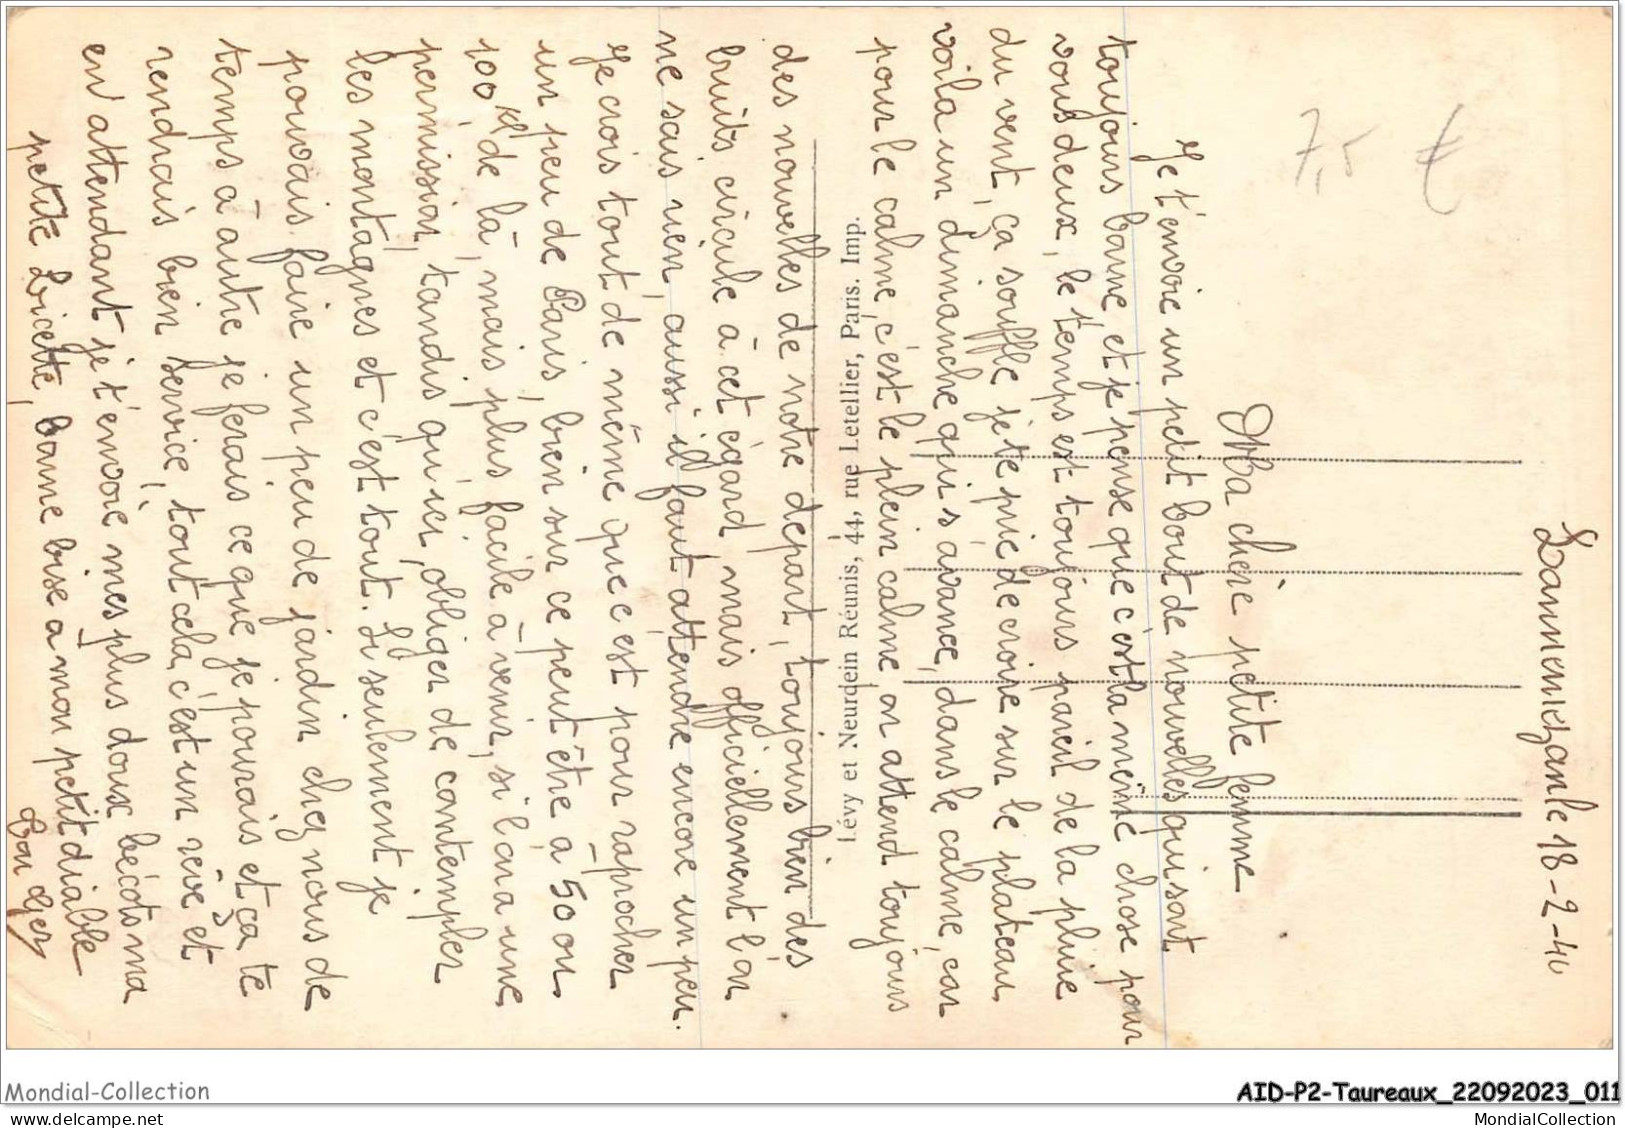 Lannemezan le 18-2-40
Ma chère petite femme
Je t'envoie un petit bout de nouvelles qui sont
toujours bonne et je pense que c'est la même chose pour
vous deux, le temps est toujours pareil de la pluie
du vent, ça souffle je te prie de croire sur le plateau,
voila un dimanche qui s'avance, dans le calme, car
pour le calme, c'est le plein calme, on attend toujours
des nouvelles de notre depart, toujours bien des
bruits circule à cet égard mais officiellement l'on
ne sais rien, aussi il faut attendre encore un peu.
Je crois tout de même que c'est pour raprocher
un peu de Paris, bien sur ce peut être à 50 ou
100 K de là, mais plus facile à venir, si l'on a une
permission, tandis qu'ici, obliger de contempler
les montagnes et c'est tout. Si seulement je
pouvais faire un peu de jardin chez nous de
temps à autre je ferais ce que je pourais et ça te
rendrais bien service, tout cela, c'est un rêve et
en attendant je t'envoie mes plus doux bécots ma
petite Licette, bonne bise à mon petit diable
Ton Ger
Lévy et Neurdein Réunis, 44, rue Letellier, Paris. Imp.
7,5 €
Mondial-Collection
AID-P2-Taureaux_22092023_011
MondialCollection